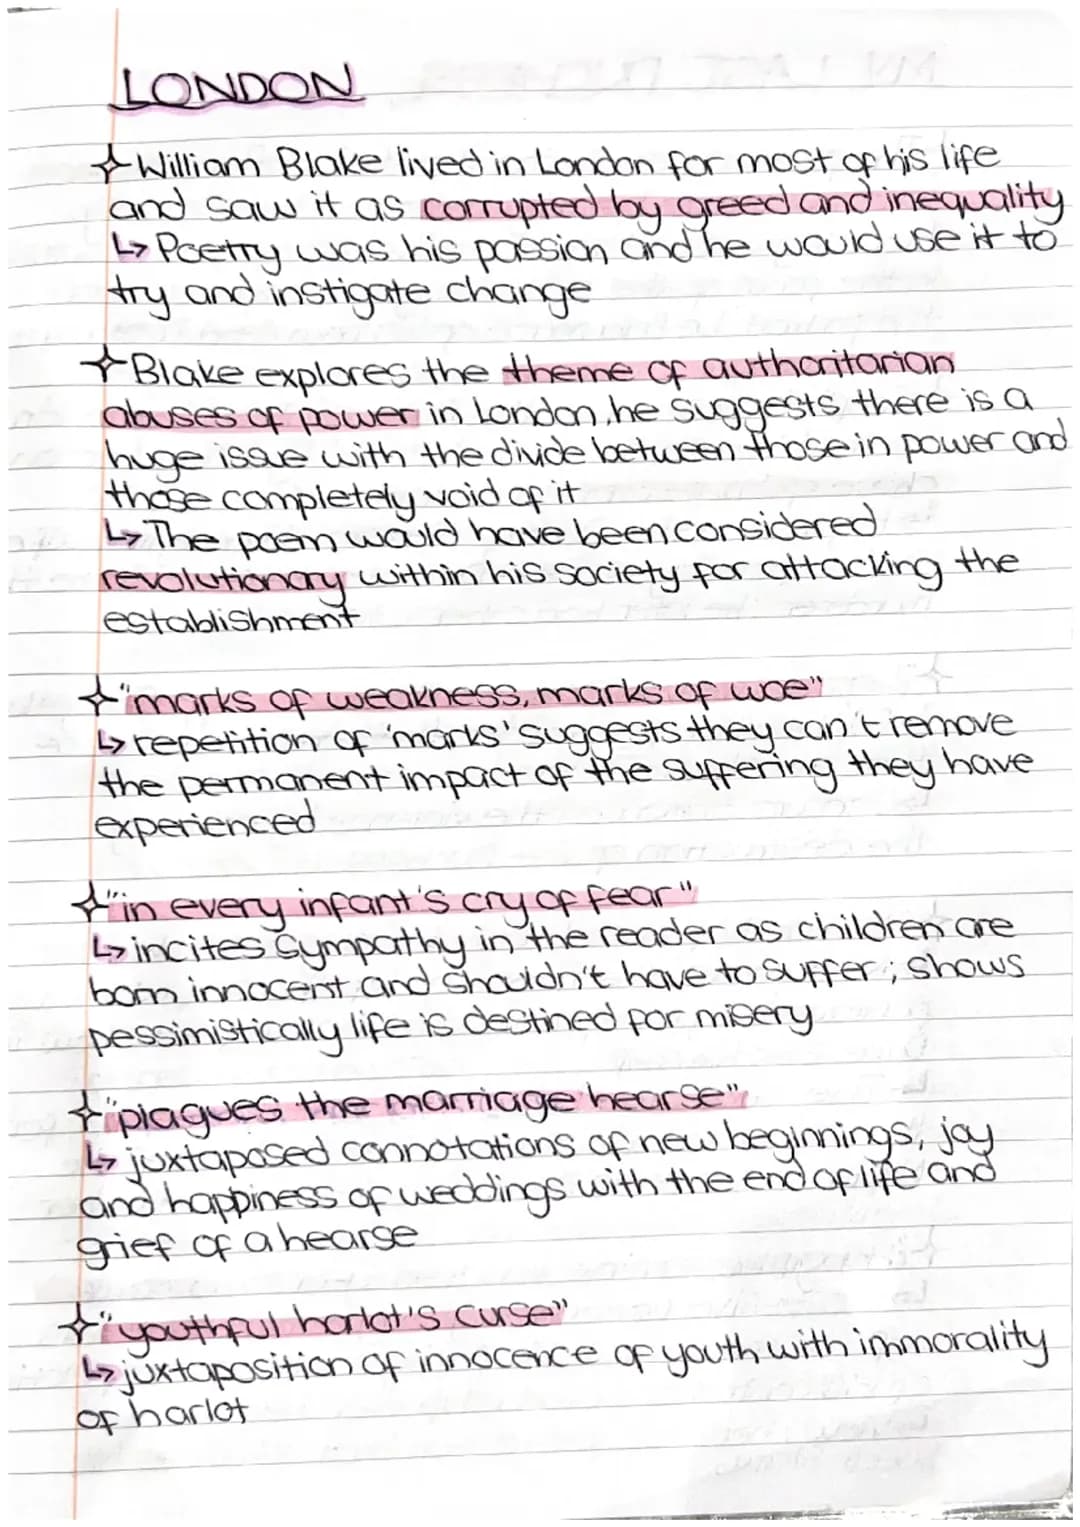 LONDON
William Blake lived in London for most of his life
and saw it as corrupted by greed and inequality
↳ Poetry was his passion and he would use it to
try and instigate change
Blake explores the theme of authoritarian
abuses of power in London, he suggests there is a
huge issue with the divide between those in power and
those completely void of it
↳ The poem would have been considered
revolutionary within his society for attacking the
establishment
"marks of weakness, marks of woe"
↳ repetition of 'marks' suggests they can't remove
the permanent impact of the suffering they have
experienced
"in every infant's cry of fear"
↳ incites sympathy in the reader as children are
born innocent and shouldn't have to suffer; shows
pessimistically life is destined for misery
"plagues the marriage hearse"
↳ juxtaposed connotations of new beginnings, joy
and happiness of weddings with the end of life and
grief of a hearse
"youthful harlot's curse"
↳ juxtaposition of innocence of youth with immorality
of harlot